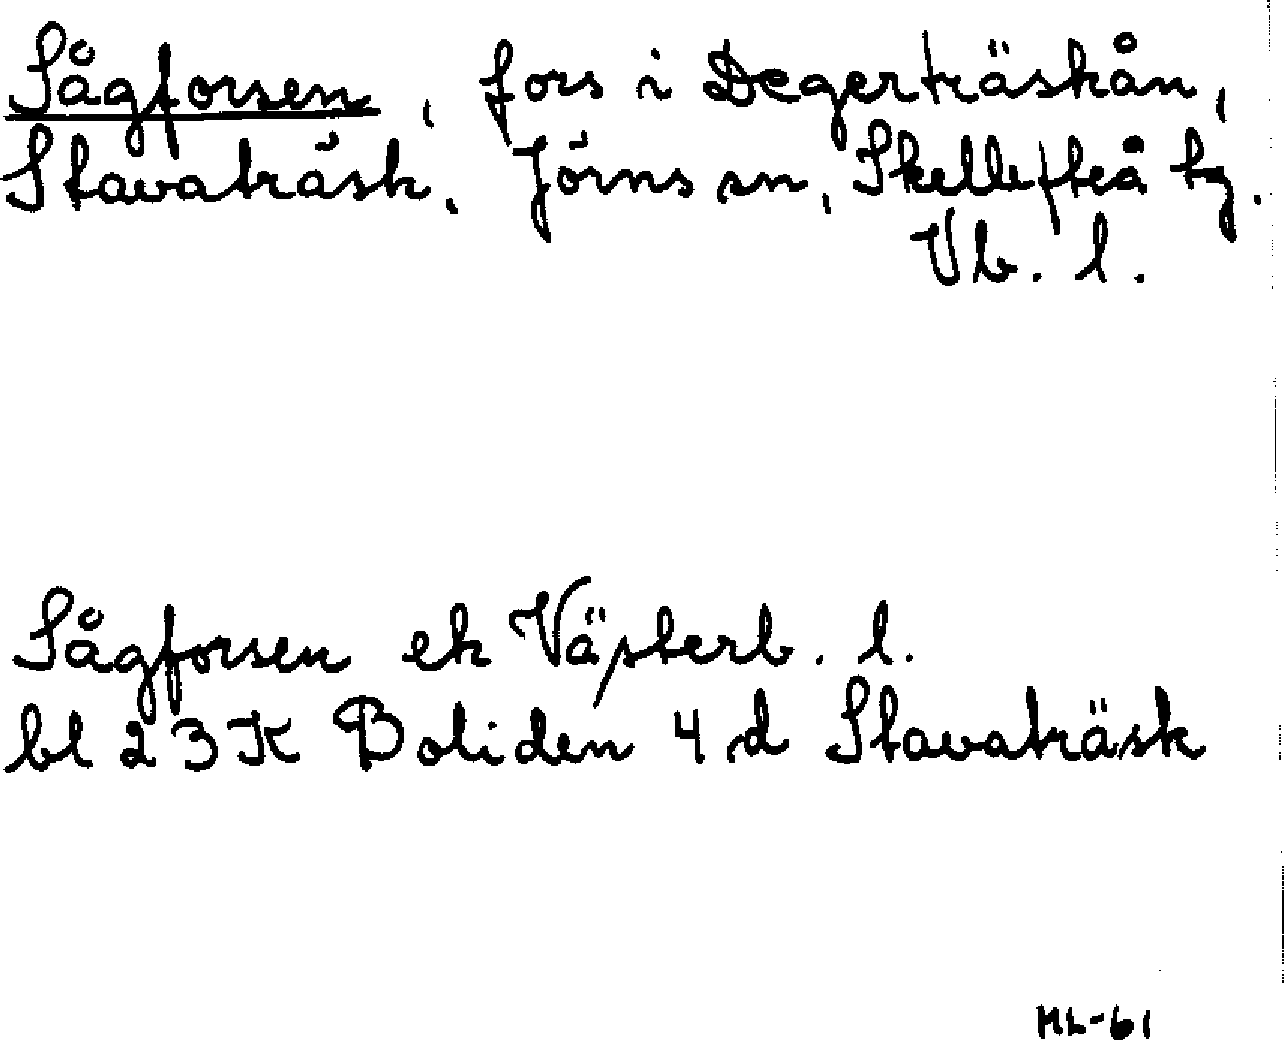 Sågforsen, fors i Degerträskån,
Stavaträsk, Jörns sn, Skellefteå tg.
Vb. l.
Sågforsen ek Västerb. l.
bl 23K Boliden 4d Stavaträsk
ML-61